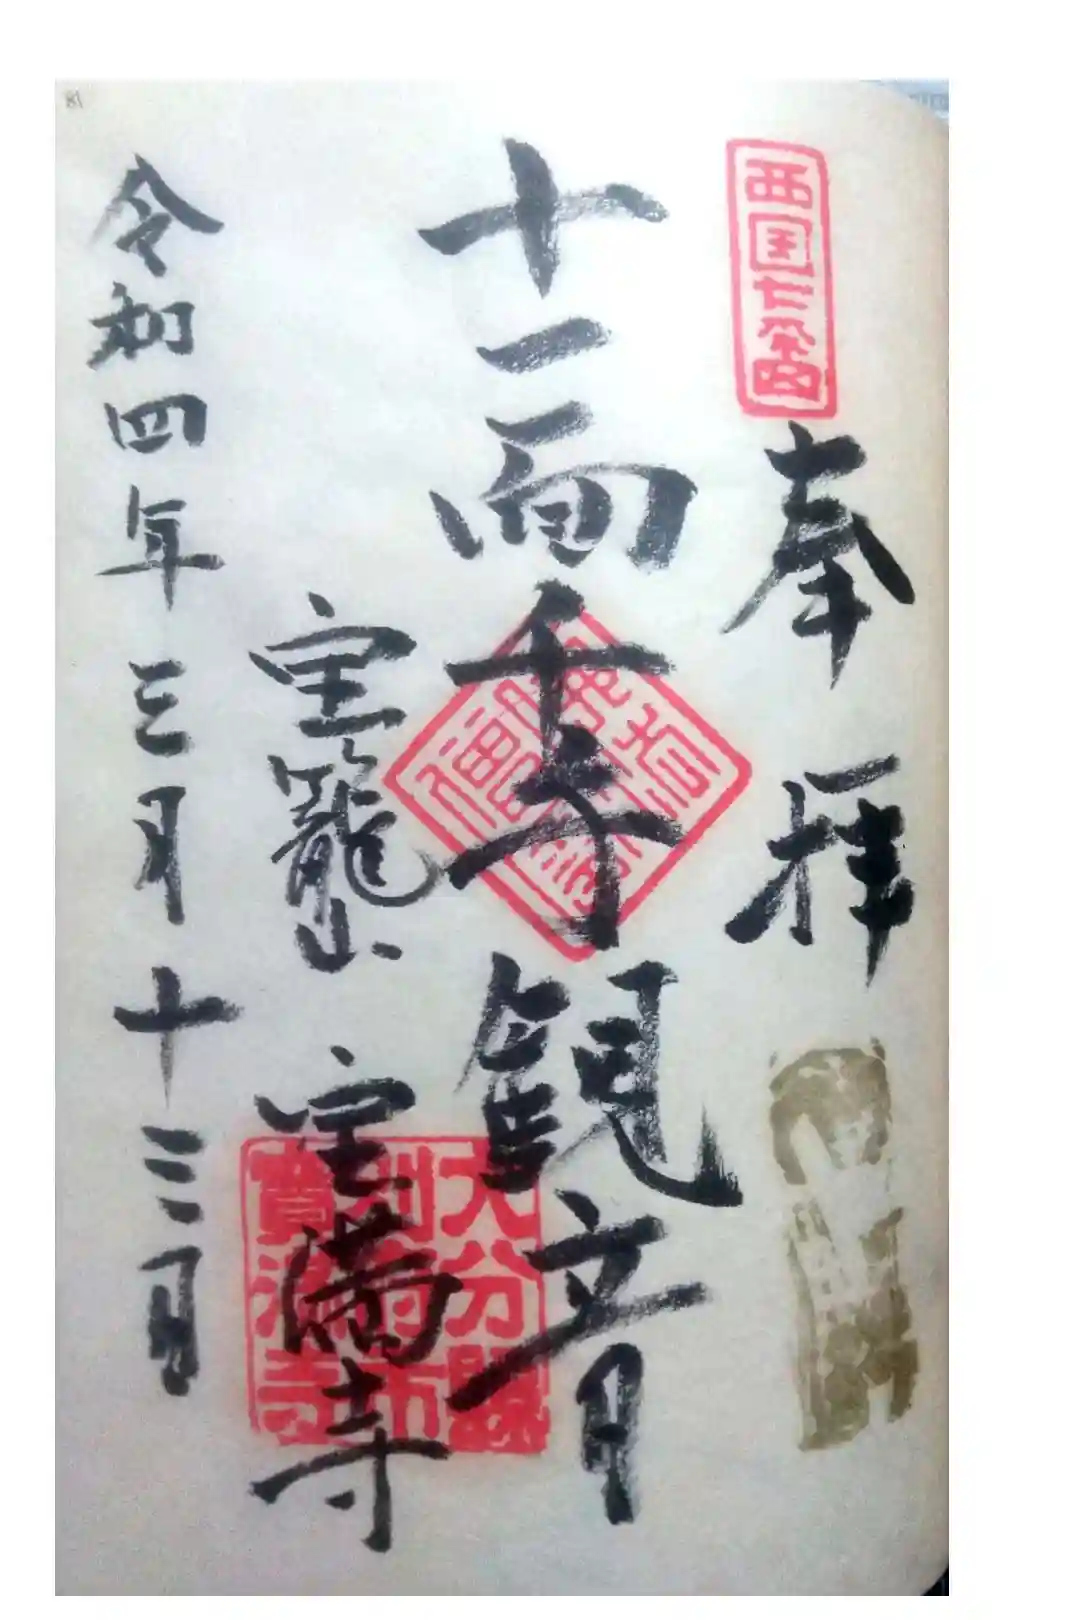 西国廿番
奉拝
十一面千手観音
宝篭山 宝満寺
大分県
別府市
寳満寺
令和四年三月十三日
81